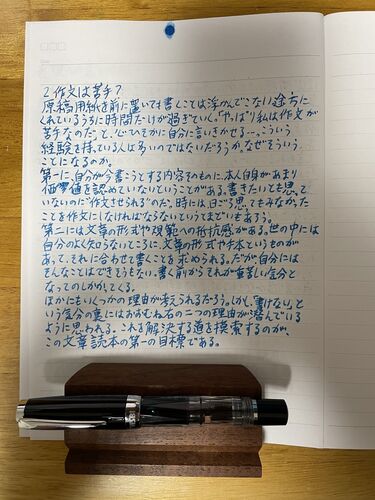 2.作文は苦手?
原稿用紙を前に置いても書くことは浮かんでこない途方に
くれているうちに時間だけが過ぎていく。「やっぱり私は作文が
苦手なのだ」と、心ひそかに自分に言いきかせる…。こういう
経験を持っている人は多いのではないだろうか。なぜそういう
ことになるのか。
第一に、自分が今書こうとする内容そのものに、本人自身があまり
価値を認めていないということがある。書きたいとも思っ
ていないのに"作文させられる"のだ。時には、日ごろ思ってもみなかった
ことを作文にしなければならないということまでもあろう。
第二には文章の形式や規範への抵抗感がある。世の中には
自分のよく知らないところに文章の形式や手本というものが
あって、それに合わせて書くことを求められる。だが、自分には
そんなことはできそうもない。書く前からそれが重苦しい気分と
なってのしかかってくる。
ほかにもいくつかの理由が考えられるだろう。しかし、「書けない」と
いう気分の裏にはおおむね右の二つの理由が潜んでいる
ように思われる。これを解決する道を模索するのが、
この文章読本の第一の目標である。